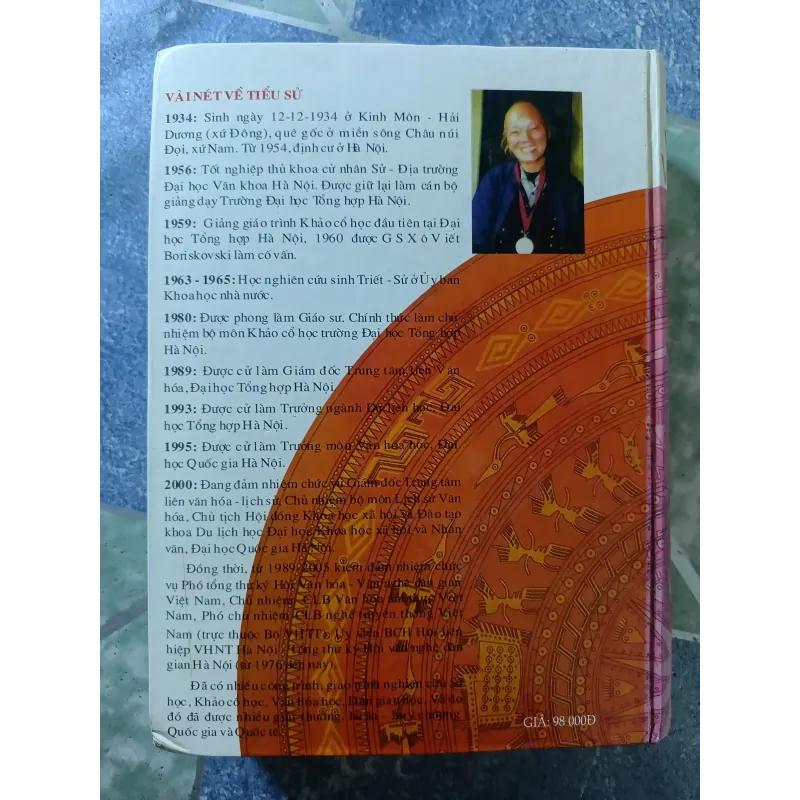 VÀI NÉT VỀ TIỂU SỬ
1934: Sinh ngày 12-12-1934 ở Kinh Môn - Hải
Dương (xứ Đông), quê gốc ở miền sông Châu núi
Đọi, xứ Nam. Từ 1954, định cư ở Hà Nội.
1956: Tốt nghiệp thủ khoa cử nhân Sử - Địa trường
Đại học Văn khoa Hà Nội. Được giữ lại làm cán bộ
giảng dạy Trường Đại học Tổng hợp Hà Nội.
1959: Giảng giáo trình Khảo cổ học đầu tiên tại Đại
học Tổng hợp Hà Nội, 1960 được G S X ô V iết
Boriskovski làm cố vấn.
1963 - 1965: Học nghiên cứu sinh Triết - Sử ở Ủy ban
Khoa học nhà nước.
1980: Được phong làm Giáo sư. Chính thức làm chủ
nhiệm bộ môn Khảo cổ học trường Đại học Tổng hợp
Hà Nội.
1989: Được cử làm Giám đốc Trung tâm liên Văn
hóa, Đại học Tổng hợp Hà Nội.
1993: Được cử làm Trưởng ngành Du lịch học, Đại
học Tổng hợp Hà Nội.
1995: Được cử làm Trưởng môn Văn hóa học, Đại
học Quốc gia Hà Nội.
2000: Đang đảm nhiệm chức vụ Giám đốc Trung tâm
liên văn hóa - lịch sử, Chủ nhiệm bộ môn Lịch sử Văn
hóa, Chủ tịch Hội đồng Khoa học xã hội và Đào tạo
khoa Du lịch học Đại học Khoa học xã hội và Nhân
văn, Đại học Quốc gia Hà Nội.
Đồng thời, từ 1989-2005 kiêm đảm nhiệm chức
vụ Phó tổng thư ký Hội Văn hóa - Văn nghệ dân gian
Việt Nam, Chủ nhiệm CLB Văn hóa ẩm thực Việt
Nam, Phó chủ nhiệm CLB nghề truyền thống Việt
Nam (trực thuộc Bộ VHTT), Ủy viên BCH Hội liên
hiệp VHNT Hà Nội - Tổng thư ký Hội văn nghệ dân
gian Hà Nội (từ 1976 đến nay).
Đã có nhiều công trình, giáo trình nghiên cứu Sử
học, Khảo cổ học, Văn hóa học, Dân gian học. Và do
đó đã được nhiều giải thưởng, huân - huy chương
Quốc gia và Quốc tế.
GIÁ: 98 000Đ